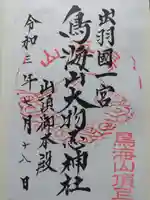 出羽國一宮
鳥海山大物忌神社
山頂御本殿
令和三年七月十八日
鳥海山頂